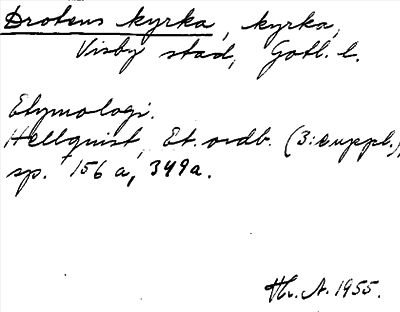 Drotens kyrka, kyrka,
Visby stad, Gotl. l.
Etymologi.
Hellquist, Et. ordb. (3:e uppl.),
sp. 156 a, 349 a.
Hr. A. 1955.